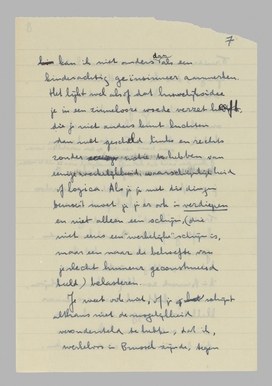 7
kan ik niet anders dan als een
kinderachtig geïnsinueer aanmerken.
Het lijkt wel alsof dat huwelijksidee
je in een zinnelooze woede verzet heeft,
die je niet anders kunt luchten
dan met gescheld links en rechts
zonder notie te hebben van
eenige redelijkheid, waarschijnlijkheid
of logica. Als je je met die dingen
bemoeit moet je je er ook in verdiepen
en niet alleen een schijn, (die
niet eens een "werkelijke" schijn is,
maar een naar de behoefte van
je slecht humeur geconstrueerd
beeld) belasteren.
Je weet ook wat, of je schijnt
althans niet de mogelijkheid
verondersteld te hebben, dat ik,
werkeloos in Brussel zijnde, tegen